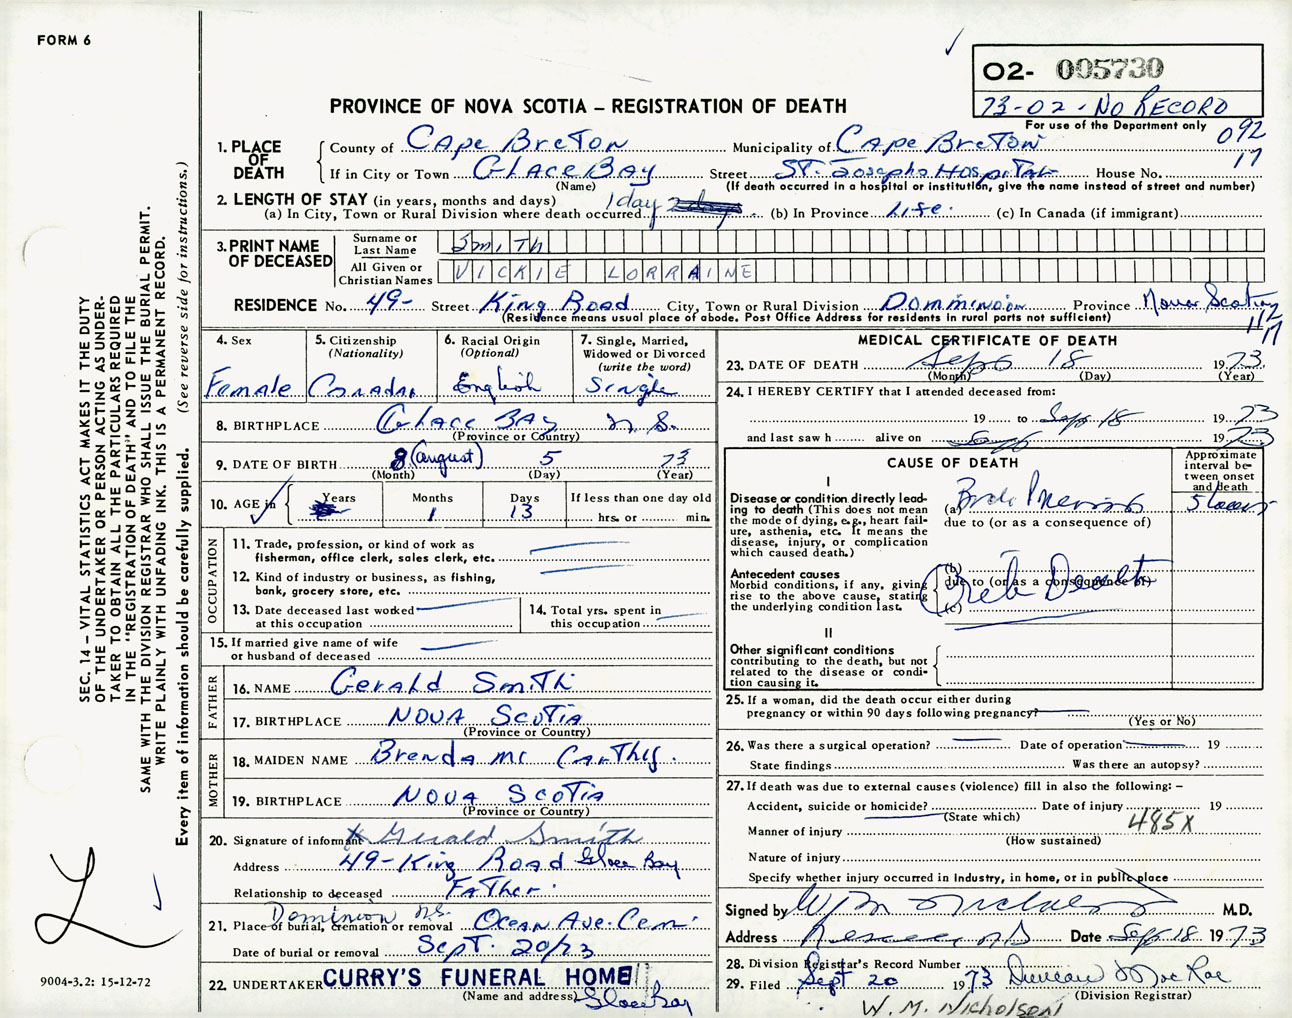 FORM 6
O2- 005730
73-02-No RECORD
For use of the Department only
PROVINCE OF NOVA SCOTIA – REGISTRATION OF DEATH
092
17
1. PLACE OF DEATH
County of Cape Breton Municipality of Cape Breton
If in City or Town Glace Bay Street St. Josephs Hospital House No.
(Name) (If death occurred in a hospital or institution, give the name instead of street and number)
2. LENGTH OF STAY (in years, months and days)
(a) In City, Town or Rural Division where death occurred 1 day (b) In Province Life. (c) In Canada (if immigrant)
3. PRINT NAME OF DECEASED
Surname or Last Name Smith
All Given or Christian Names VICKIE LORRAINE
RESIDENCE No. 49- Street King Road City, Town or Rural Division Dominion Province Nova Scotia
(Residence means usual place of abode. Post Office Address for residents in rural parts not sufficient)
112
17
4. Sex Female
5. Citizenship (Nationality) Canadian
6. Racial Origin (Optional) English
7. Single, Married, Widowed or Divorced (write the word) Single
8. BIRTHPLACE Glace Bay N.S.
(Province or Country)
9. DATE OF BIRTH 8 (august) 5 73
(Month) (Day) (Year)
10. AGE in Years Months 1 Days 13 If less than one day old
hrs. or min.
OCCUPATION
11. Trade, profession, or kind of work as fisherman, office clerk, sales clerk, etc.
12. Kind of industry or business, as fishing, bank, grocery store, etc.
13. Date deceased last worked at this occupation
14. Total yrs. spent in this occupation
15. If married give name of wife or husband of deceased
FATHER
16. NAME Gerald Smith
17. BIRTHPLACE Nova Scotia
(Province or Country)
MOTHER
18. MAIDEN NAME Brenda Mc Carthy.
19. BIRTHPLACE Nova Scotia
(Province or Country)
20. Signature of informant x Gerald Smith
Address 49-King Road Glace Bay
Relationship to deceased Father.
21. Place of burial, cremation or removal Dominion N.S. Ocean Ave. Cem.
Date of burial or removal Sept. 20/73
22. UNDERTAKER CURRY'S FUNERAL HOME
(Name and address) Glace Bay
MEDICAL CERTIFICATE OF DEATH
23. DATE OF DEATH Sept 18 1973
(Month) (Day) (Year)
24. I HEREBY CERTIFY that I attended deceased from:
19 to Sept 18 1973
and last saw h alive on Sept 1973
CAUSE OF DEATH
Approximate interval between onset and death
I
Disease or condition directly leading to death (This does not mean the mode of dying, e.g., heart failure, asthenia, etc. It means the disease, injury, or complication which caused death.)
(a)
due to (or as a consequence of)
Antecedent causes
Morbid conditions, if any, giving rise to the above cause, stating the underlying condition last.
(b)
due to (or as a consequence of)
(c)
Crib Death
II
Other significant conditions contributing to the death, but not related to the disease or condition causing it.
25. If a woman, did the death occur either during pregnancy or within 90 days following pregnancy?
(Yes or No)
26. Was there a surgical operation? Date of operation 19
State findings Was there an autopsy?
27. If death was due to external causes (violence) fill in also the following: –
Accident, suicide or homicide? Date of injury 19
(State which)
485X
Manner of injury
(How sustained)
Nature of injury
Specify whether injury occurred in Industry, in home, or in public place
Signed by M.D.
Address Date Sept 18 1973
28. Division Registrar's Record Number
29. Filed Sept 20 1973 Duncan MacRae
(Division Registrar)
W. M. Nicholson
SEC. 14 – VITAL STATISTICS ACT MAKES IT THE DUTY
OF THE UNDERTAKER OR PERSON ACTING AS UNDERTAKER TO OBTAIN ALL THE PARTICULARS REQUIRED
IN THE "REGISTRATION OF DEATH" AND TO FILE THE
SAME WITH THE DIVISION REGISTRAR WHO SHALL ISSUE THE BURIAL PERMIT.
WRITE PLAINLY WITH UNFADING INK. THIS IS A PERMANENT RECORD.
Every item of information should be carefully supplied. (See reverse side for instructions.)
9004-3.2: 15-12-72